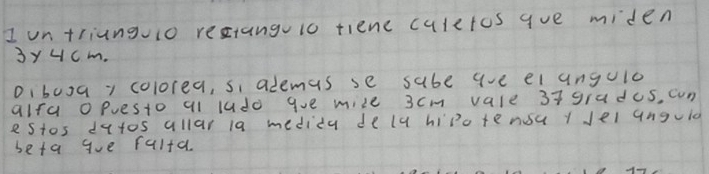 I un triangulo rectangulo tiene catetos que miden
3 y 4 cm.
Dibuja y colorea, si ademas se sabe que el angulo
alfa opuesto al lado que mide 3cm vale 37 grados. con
estos datos allar la medida de la hipotensa y del angulo
beta que falta.